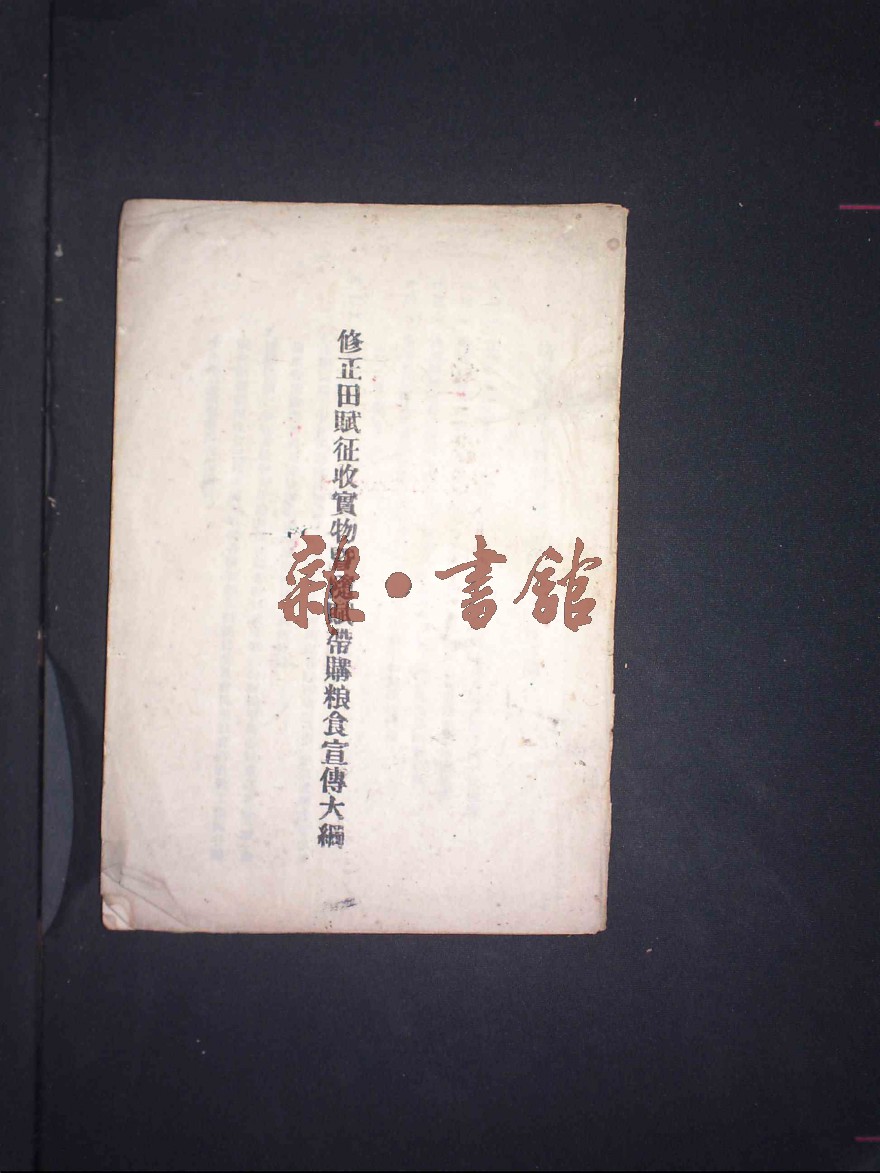 修正田賦征收實物暨隨賦帶購粮食宣傳大綱
雜·書館